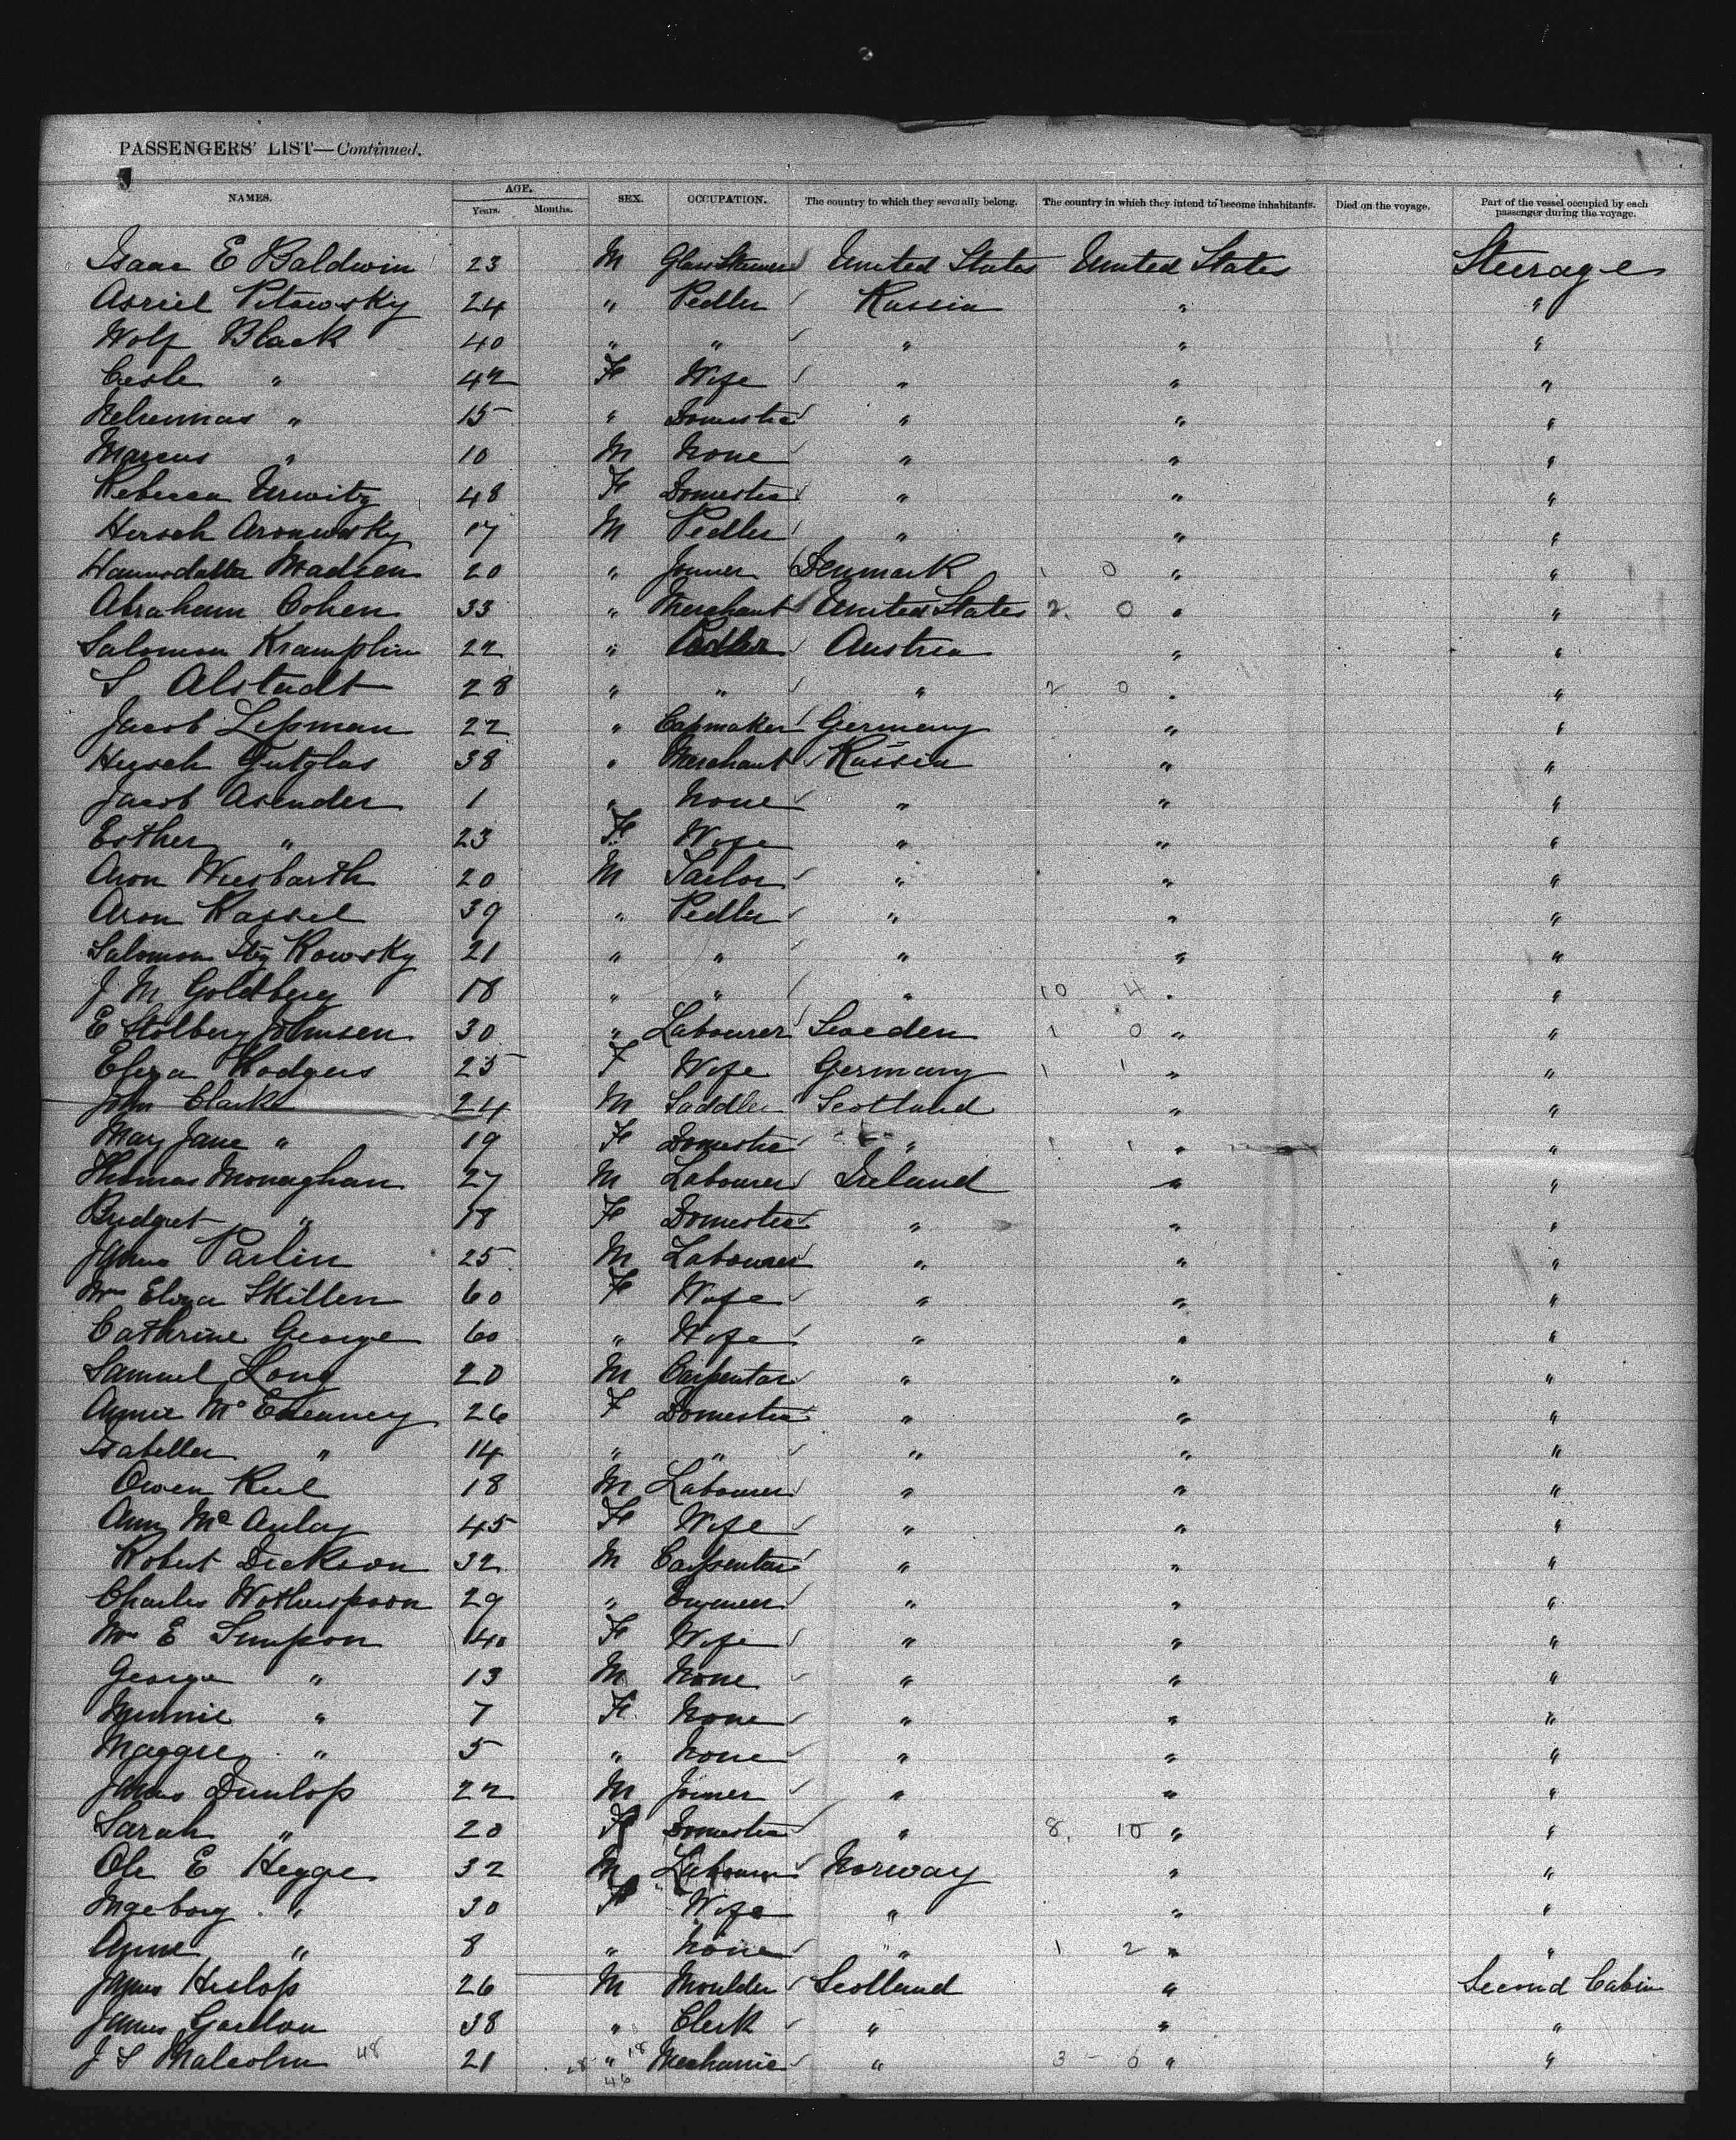 PASSENGERS' LIST—Continued.
NAMES. AGE. Years. Months. SEX. OCCUPATION. The country to which they severally belong. The country in which they intend to become inhabitants. Died on the voyage. Part of the vessel occupied by each passenger during the voyage.
Isaac E Baldwin 23 M United States United States Steerage
Asriel Pitowsky 24 " Pedler Russia " "
Wolf Black 40 " " " " "
" 42 F Wife " " "
" 15 " Domestic " " "
Marcus " 10 M None " " "
Rebecca Urwitz 48 F Domestic " " "
Hersch Aronowsky 17 M Pedler " " "
Madsen 20 " Joiner Denmark 1 0 " "
Abraham Cohen 33 " Merchant United States 2. 0 " "
Salomon Kramplin 22 " Pedler Austria " "
S Alstadt 28 " " " 2 0 " "
Jacob Lipman 22 " Capmaker Germany " "
Hersch Gutglas 38 " Merchant Russia " "
Jacob Asender 1 " None " " "
Esther " 23 F Wife " " "
Aron Wiesbarth 20 M Tailor " " "
Aron Kassel 39 " Pedler " " "
Salomon Itz Kowsky 21 " " " " "
J M Goldberg 18 " " " 10 4 " "
E Stolberg Johnsen 30 " Labourer Sweden 1 0 " "
Eliza Hodgers 25 F Wife Germany 1 1 " "
John Clarke 24 M Saddler Scotland " "
Mary Jane " 19 F Domestic " 1 1 " "
Thomas Monaghan 27 M Labourer Ireland " "
Bridget " 18 F Domestic " " "
James Parlin 25 M Labourer " " "
Mrs Eliza Skillen 60 F Wife " " "
Cathrine George 60 " Wife " " "
Samuel Long 20 M Carpentar " " "
Annie Mc 26 F Domestic " " "
Isabella " 14 " " " " "
Owen Kiel 18 M Labourer " " "
Ann Mc Aulay 45 F Wife " " "
Robert Dickson 32 M Carpentar " " "
Charles Wotherspoon 29 " Engineer " " "
Mrs E Simpson 40 F Wife " " "
George " 13 M None " " "
Minnie " 7 F None " " "
Maggie " 5 " None " " "
James Dunlop 22 M Joiner " " "
Sarah " 20 F Domestic " 8. 10 " "
Ole E Hegge 32 M Labourer Norway " "
Ingeborg " 30 F Wife " " "
Anne " 8 " None " 1 2 " "
James Heslop 26 M Moulder Scotland " Second Cabin
James Gordon 38 " Clerk " " "
J S Malcolm 48 21 28 " 18 Mechanic " 3 - 0 " "
46